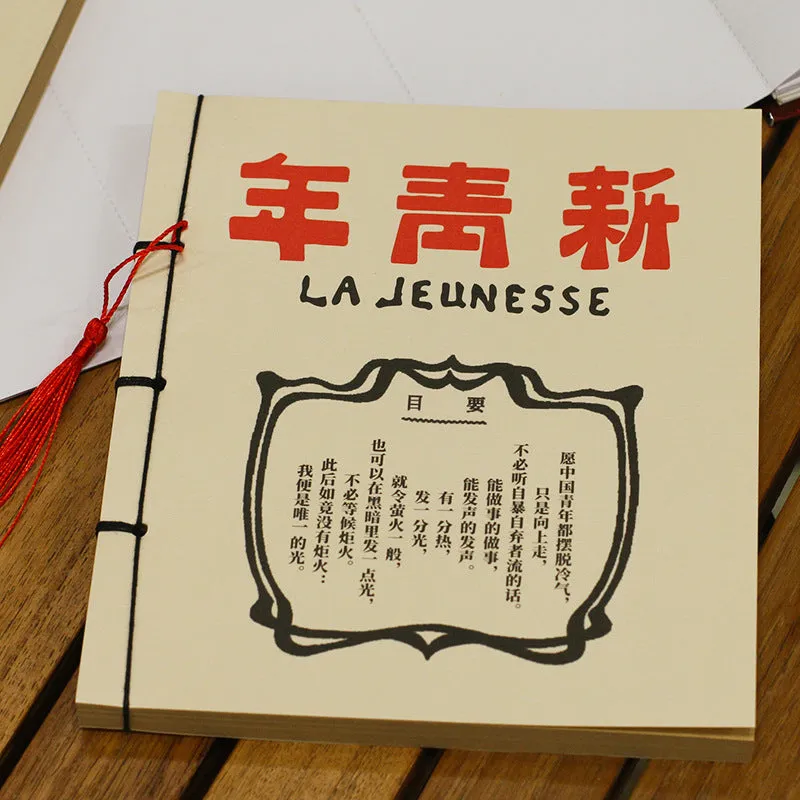 新青年
LA JEUNESSE
目 要
愿中国青年都摆脱冷气，
只是向上走，
不必听自暴自弃者流的话。
能做事的做事，
能发声的发声。
有一分热，
发一分光，
就令萤火一般，
也可以在黑暗里发一点光，
不必等候炬火。
此后如竟没有炬火：
我便是唯一的光。